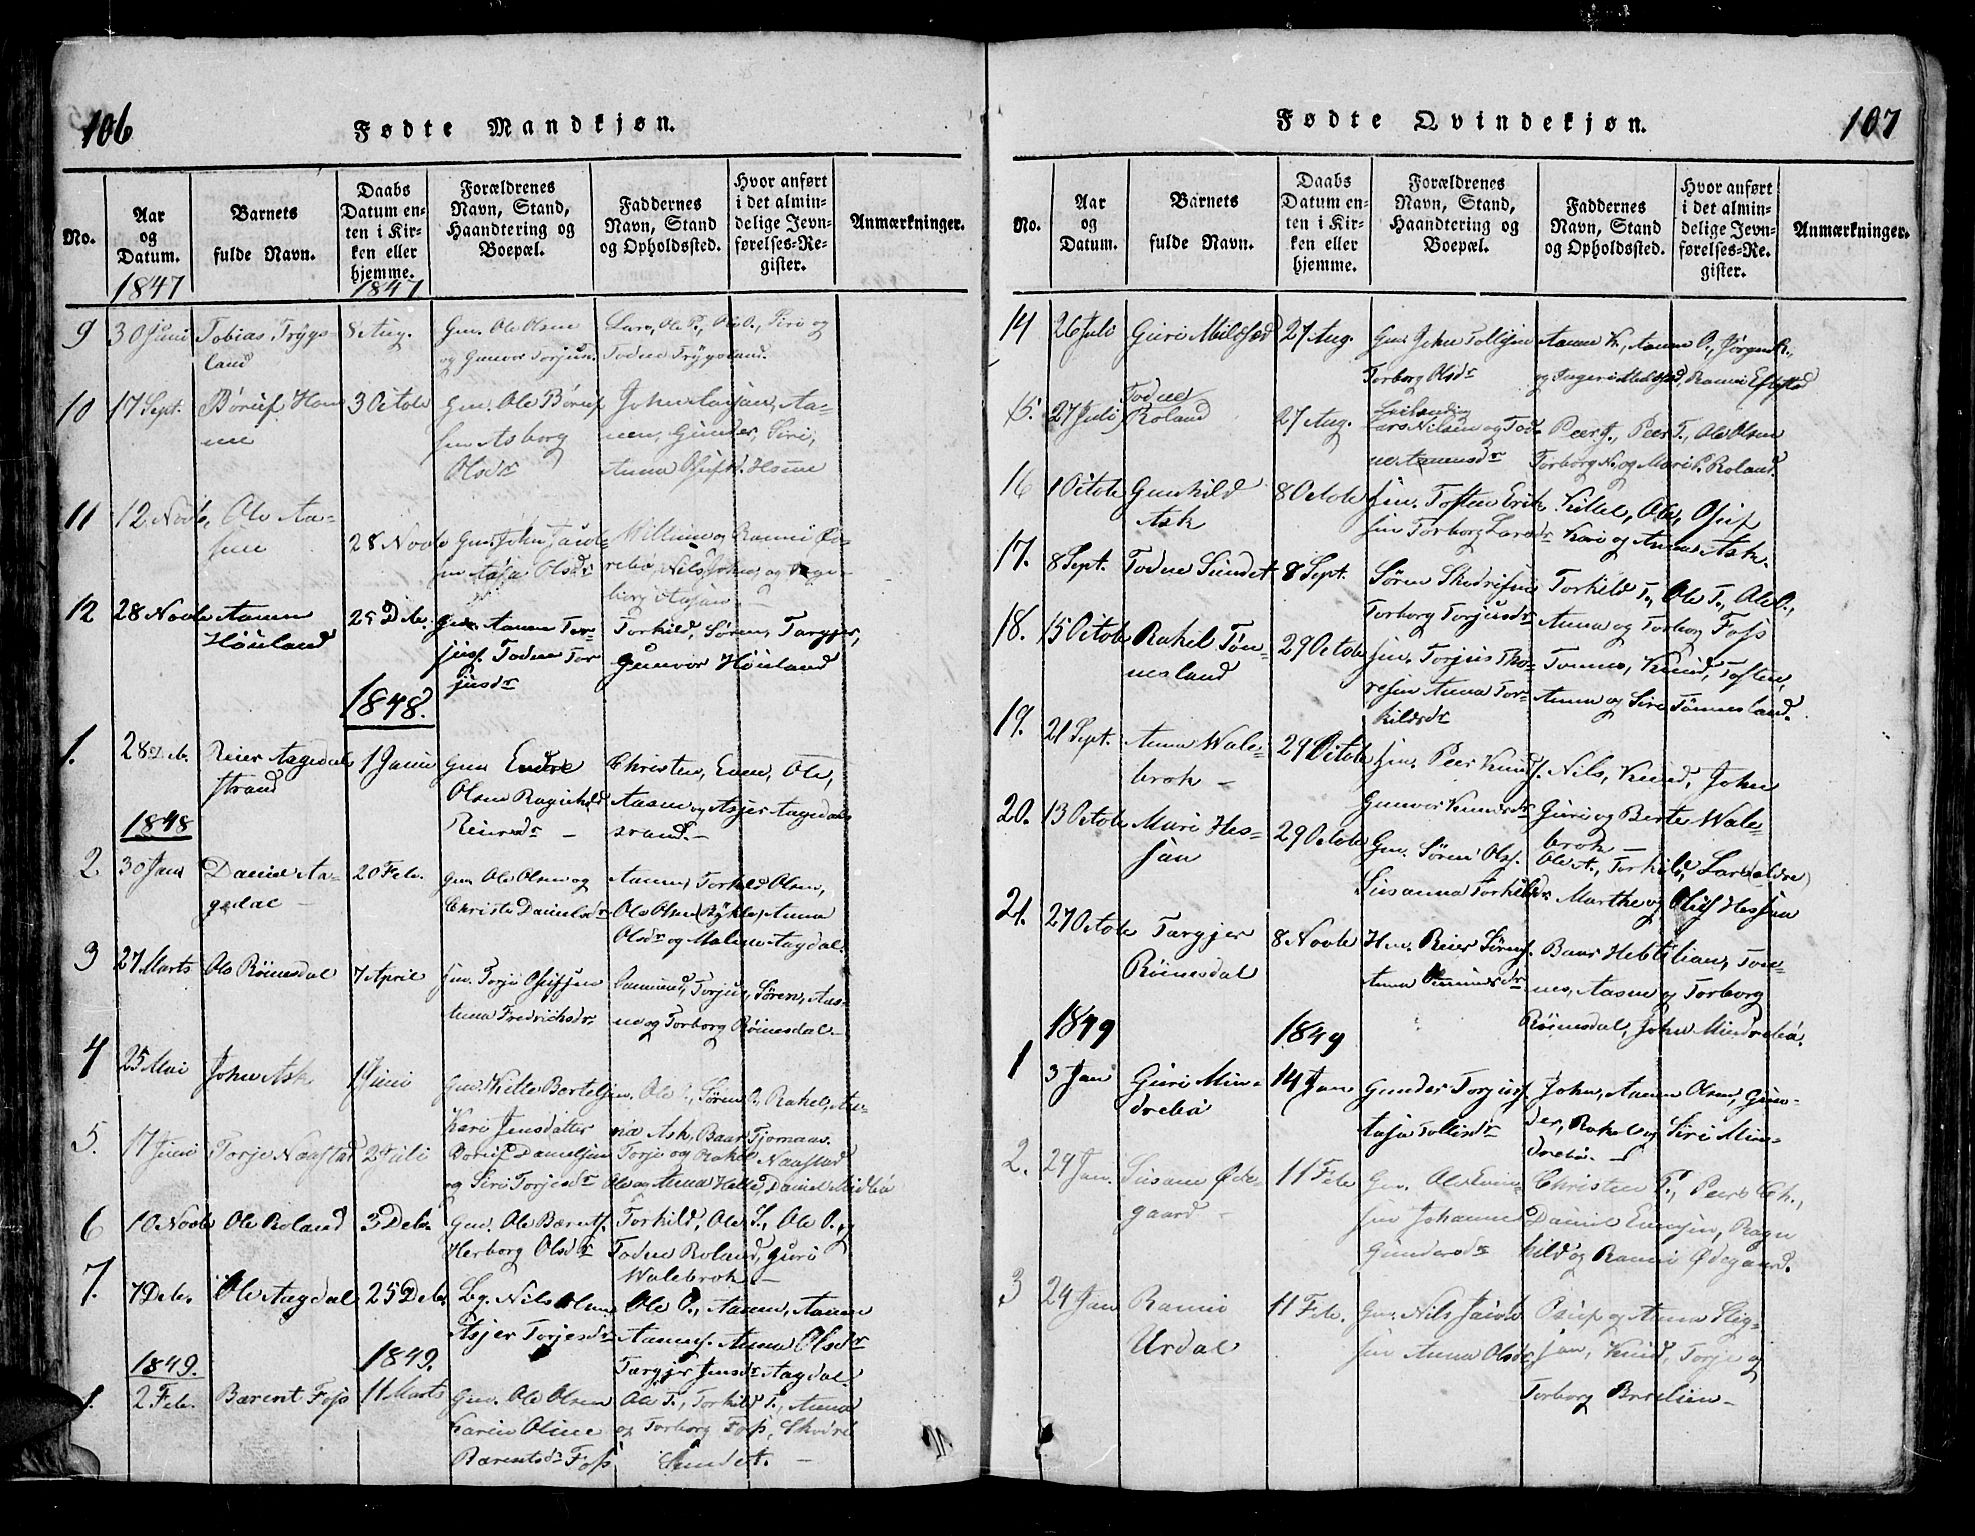 106
Fødte Mandkjøn.
No.
Aar og Datum.
Barnets fulde Navn.
Daabs Datum enten i Kirken eller hjemme.
Forældrenes Navn, Stand, Haandtering og Boepæl.
Faddernes Navn, Stand og Opholdssted.
Hvor anført i det almindelige Jevnførelses-Register.
Anmærkninger.
1847
1847
9 30 Juni Tobias Trygsland 8 Aug. Gm. Ole Olsen og Gunvor Torjusd. Lars, Ole T., Ole O., Siri og Todne Trygsland.
10 17 Sept. Børuf Homme 3 Octobr Gm. Ole Børufsen Asborg Olsdr John Aasan, Aanen, Gunder, Siri, Anna Osufsd. Homme
11 12 Novbr. Ole Aasen 28 Novbr Gm. John Jacobsen Aasa Olsdr William og Ranni Øvrebø, Nils, John og Ingeborg Aasen
12 28 Novbr Aanen Høiland 25 Debr. Gm. Aanen Torjusf. Todne Torjusdr Torkild, Søren, Targjer, Gunvor Høiland
1848.
1. 28 Deb. Reier Aagedalstrand 1 Janu Gm Endre Olsen Ragnhild Reiersdr Christen, Even, Ole, Aasne og Asjer Aagedalstrand
1848
2. 30 Jan Daniel Aagedal 20 Feb. Gm Ole Olsen og Christi Danielsdr Aanen, Torkild Olsen, Ole Olsen Anna Olsdr og Malene Aagdal.
3 27 Marts Ole Röinesdal 7 April Gm. Torje Osufsen Anna Fredrichsdr. Torjus, Søren, Aasne og Torborg Röinesdal
4 25 Mai John Ask 1 Juni Gm. Kittel Bertelsen Kari Jensdatter Ole O., Søren O., Rakel, Ask, Baar Tjomaas.
5. 17 Juni Torje Naastad 2 Juli Børuf Danielsen og Siri Torjesdr Torje og Rakel Naastad Ole og Anna Helle, Daniel Midbø
6 10 Novbr Ole Roland 3 Debr. Gm. Ole Bærentf. Herborg Olsdr Torkild, Ole S., Ole O., og Todne Roland, Guri Walebrok
7. 7 Debr. Ole Aagdal 25 Debr Lg. Nils Olsen Asjer Torjesdr Ole O., Aanen, Aanen Aanensf. Anna Olsdr Targjer Jensdr Aagdal.
1849.
1849.
1. 2 Feb. Bærent Foss 11 Marts Gm. Ole Olsen Karen Oline Bærentsdr Foss Ole T., Torkild T., Anna og Torborg Foss, Skodrel Sundet.
107
Fødte Qvindekjøn.
No.
Aar og Datum.
Barnets fulde Navn.
Daabs Datum enten i Kirken eller hjemme.
Forældrenes Navn, Stand, Haandtering og Boepæl.
Faddernes Navn, Stand og Opholdssted.
Hvor anført i det almindelige Jevnførelses-Register.
Anmærkninger.
14 26 Juli Guri Mildstad 27 Aug. Gm. John Tollefsen Torborg Olsdr Aanen K., Aanen O., Jørgen K., og Inger Mildstad, Ranni Eftestad
15. 27 Juli Todne Roland 27 Aug. Lars Nilsen og Todne Aanensdr Peer J., Peer T., Ole Olsen Torborg N. og Mari P. Roland.
16 1 Octobr Gunhild Ask 8 Octobr Gm. Tosten Eriksen Torborg Larsdr Kittel, Ole, Osuf Kari og Anna Ask.
17. 8 Sept. Todne Sundet 8 Sept. Søren Skodrefsen Torborg Torjusdr Torkild T., Ole T., Ole O., Anna og Torborg Foss
18. 15 Octobr Rakel Tønnesland 29 Octobr Gm. Torjus Thoresen Anna Torkildsdr Tønnes, Knud, Tosten, Anna og Siri Tønnesland.
19. 21 Sept. Anna Walebrok 29 Octobr Gm. Peer Knudf. Gunvor Knudsdr Nils, Knud, John Guri og Berte Walebrok
20. 13 Octobr Mari Hessan 29 Octobr Gm. Søren Olsf. Susanna Torkildsdr Ole A., Torkild, Lars (ældre) Marthe og Osuf Hessan
21. 27 Octobr Targjer Röinesdal 8 Novbr Hm. Reier Sørensf. Anna Omundsdr Baar Hebtilien, Tønnes, Aasne og Torborg Röinesdal, John Mindrebö.
1849
1849
1 3 Jan Guri Mindrebö 14 Jan Gunder Torjusf. Aasa Tollefsdr John, Aanen Olsen, Gunder, Rakel og Siri Mindrebö.
2. 29 Jan. Susane Ødegaard 11 Feb Gm. Ole Evensen Johanne Gundersdr Christen T., Peer Ch., Daniel Evensen, Ragnhild og Ranni Ødegaard.
3 24 Jan Ranni Urdal 11 Feb. Gm. Nils Jacobsen Anna Olsdr Osuf og Anna Knud, Torje og Torborg